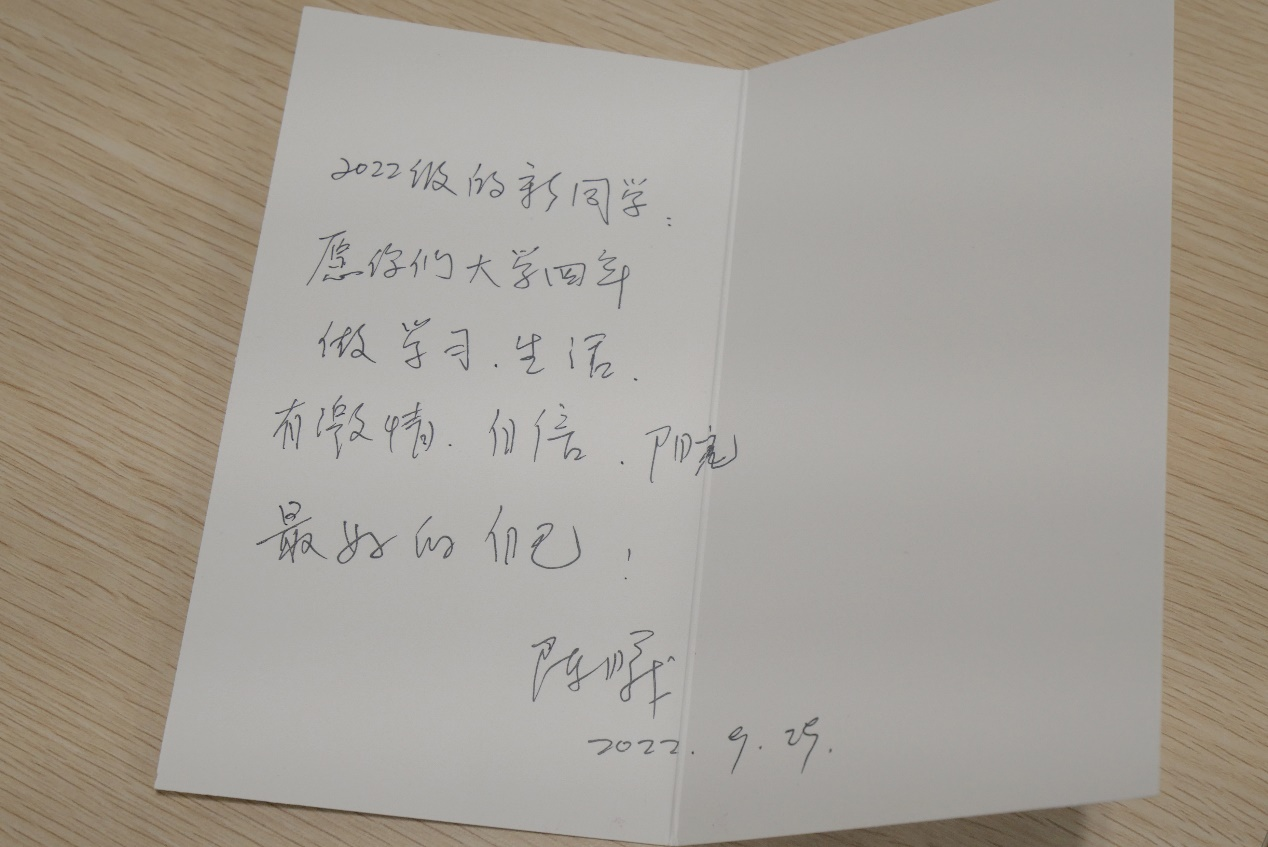 2022级的新同学:
愿你们大学四年
做学习.生活.
有激情.自信.阳亮
最好的自己!
陈
2022.9.29.